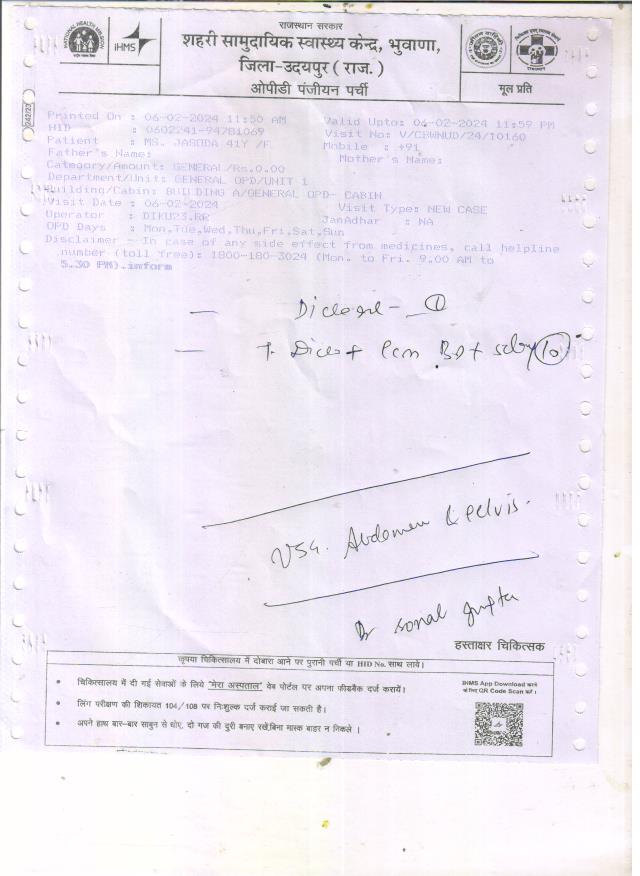 राजस्थान सरकार
शहरी सामुदायिक स्वास्थ्य केन्द्र, भुवाणा,
जिला-उदयपुर ( राज. )
ओपीडी पंजीयन पर्ची
NATIONAL HEALTH MISSION
IHMS
मूल प्रति
Printed On : 06-02-2024 11:50 AM Valid Upto: 06-02-2024 11:59 PM
HID : 060241-94781069 Visit No: V/CBWNUD/24/10160
Patient : MS. JASODA 41Y /F. Mobile : +91
Father's Name: Mother's Name:
Category/Amount: GENERAL/Rs.0.00
Department/Unit: GENERAL OPD/UNIT 1
Building/Cabin: BUILDING A/GENERAL OPD- CABIN
Visit Date : 06-02-2024 Visit Type: NEW CASE
Operator : DIKU23.RR JanAdhar : NA
OPD Days : Mon,Tue,Wed,Thu,Fri,Sat,Sun
Disclaimer - In case of any side effect from medicines, call helpline
number (toll free): 1800-180-3024 (Mon. to Fri. 9.00 AM to
5.30 PM).imform
— ①
— + BD + ⑩
USG. Abdomen & Pelvis.
Dr Sonal Gupta
हस्ताक्षर चिकित्सक
कृपया चिकित्सालय में दोबारा आने पर पुरानी पर्ची या HID No. साथ लावें।
• चिकित्सालय में दी गई सेवाओं के लिये "मेरा अस्पताल" वेब पोर्टल पर अपना फीडबैक दर्ज करायें।
• लिंग परीक्षण की शिकायत 104/108 पर निःशुल्क दर्ज कराई जा सकती है।
• अपने हाथ बार-बार साबुन से धोए, दो गज की दुरी बनाए रखें,बिना मास्क बाहर न निकले ।
IHMS App Download करने
के लिए QR Code Scan करें।